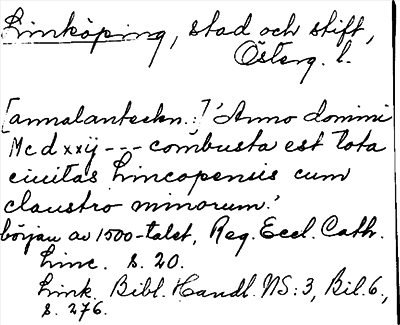 Linköping, stad och stift,
Österg. l.
[annalanteckn.:] 'Anno domini
Mcdxxij --- combusta est tota
ciuitas Lincopensis cum
claustro minorum.'
början av 1500-talet, Reg. Eccl. Cath.
Linc. s. 20.
Link. Bibl. Handl. NS: 3, Bil. 6,
s. 276.